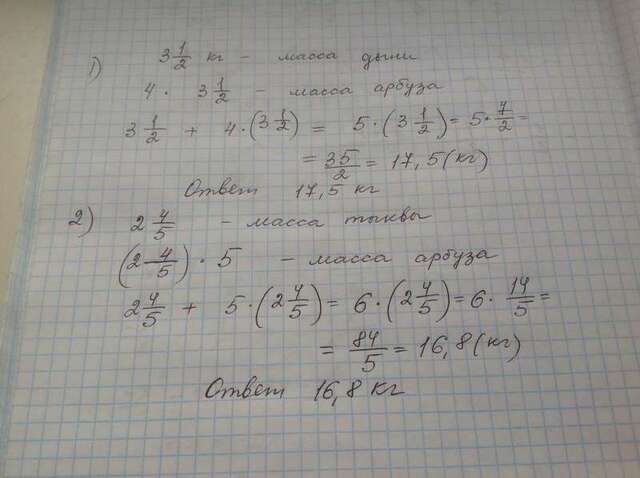 1) 3 1/2 кг - масса дыни
4 · 3 1/2 - масса арбуза
3 1/2 + 4·(3 1/2) = 5·(3 1/2) = 5·7/2 =
= 35/2 = 17,5 (кг)
Ответ 17,5 кг
2) 2 4/5 - масса тыквы
(2 4/5)·5 - масса арбуза
2 4/5 + 5·(2 4/5) = 6·(2 4/5) = 6·14/5 =
= 84/5 = 16,8 (кг)
Ответ 16,8 кг